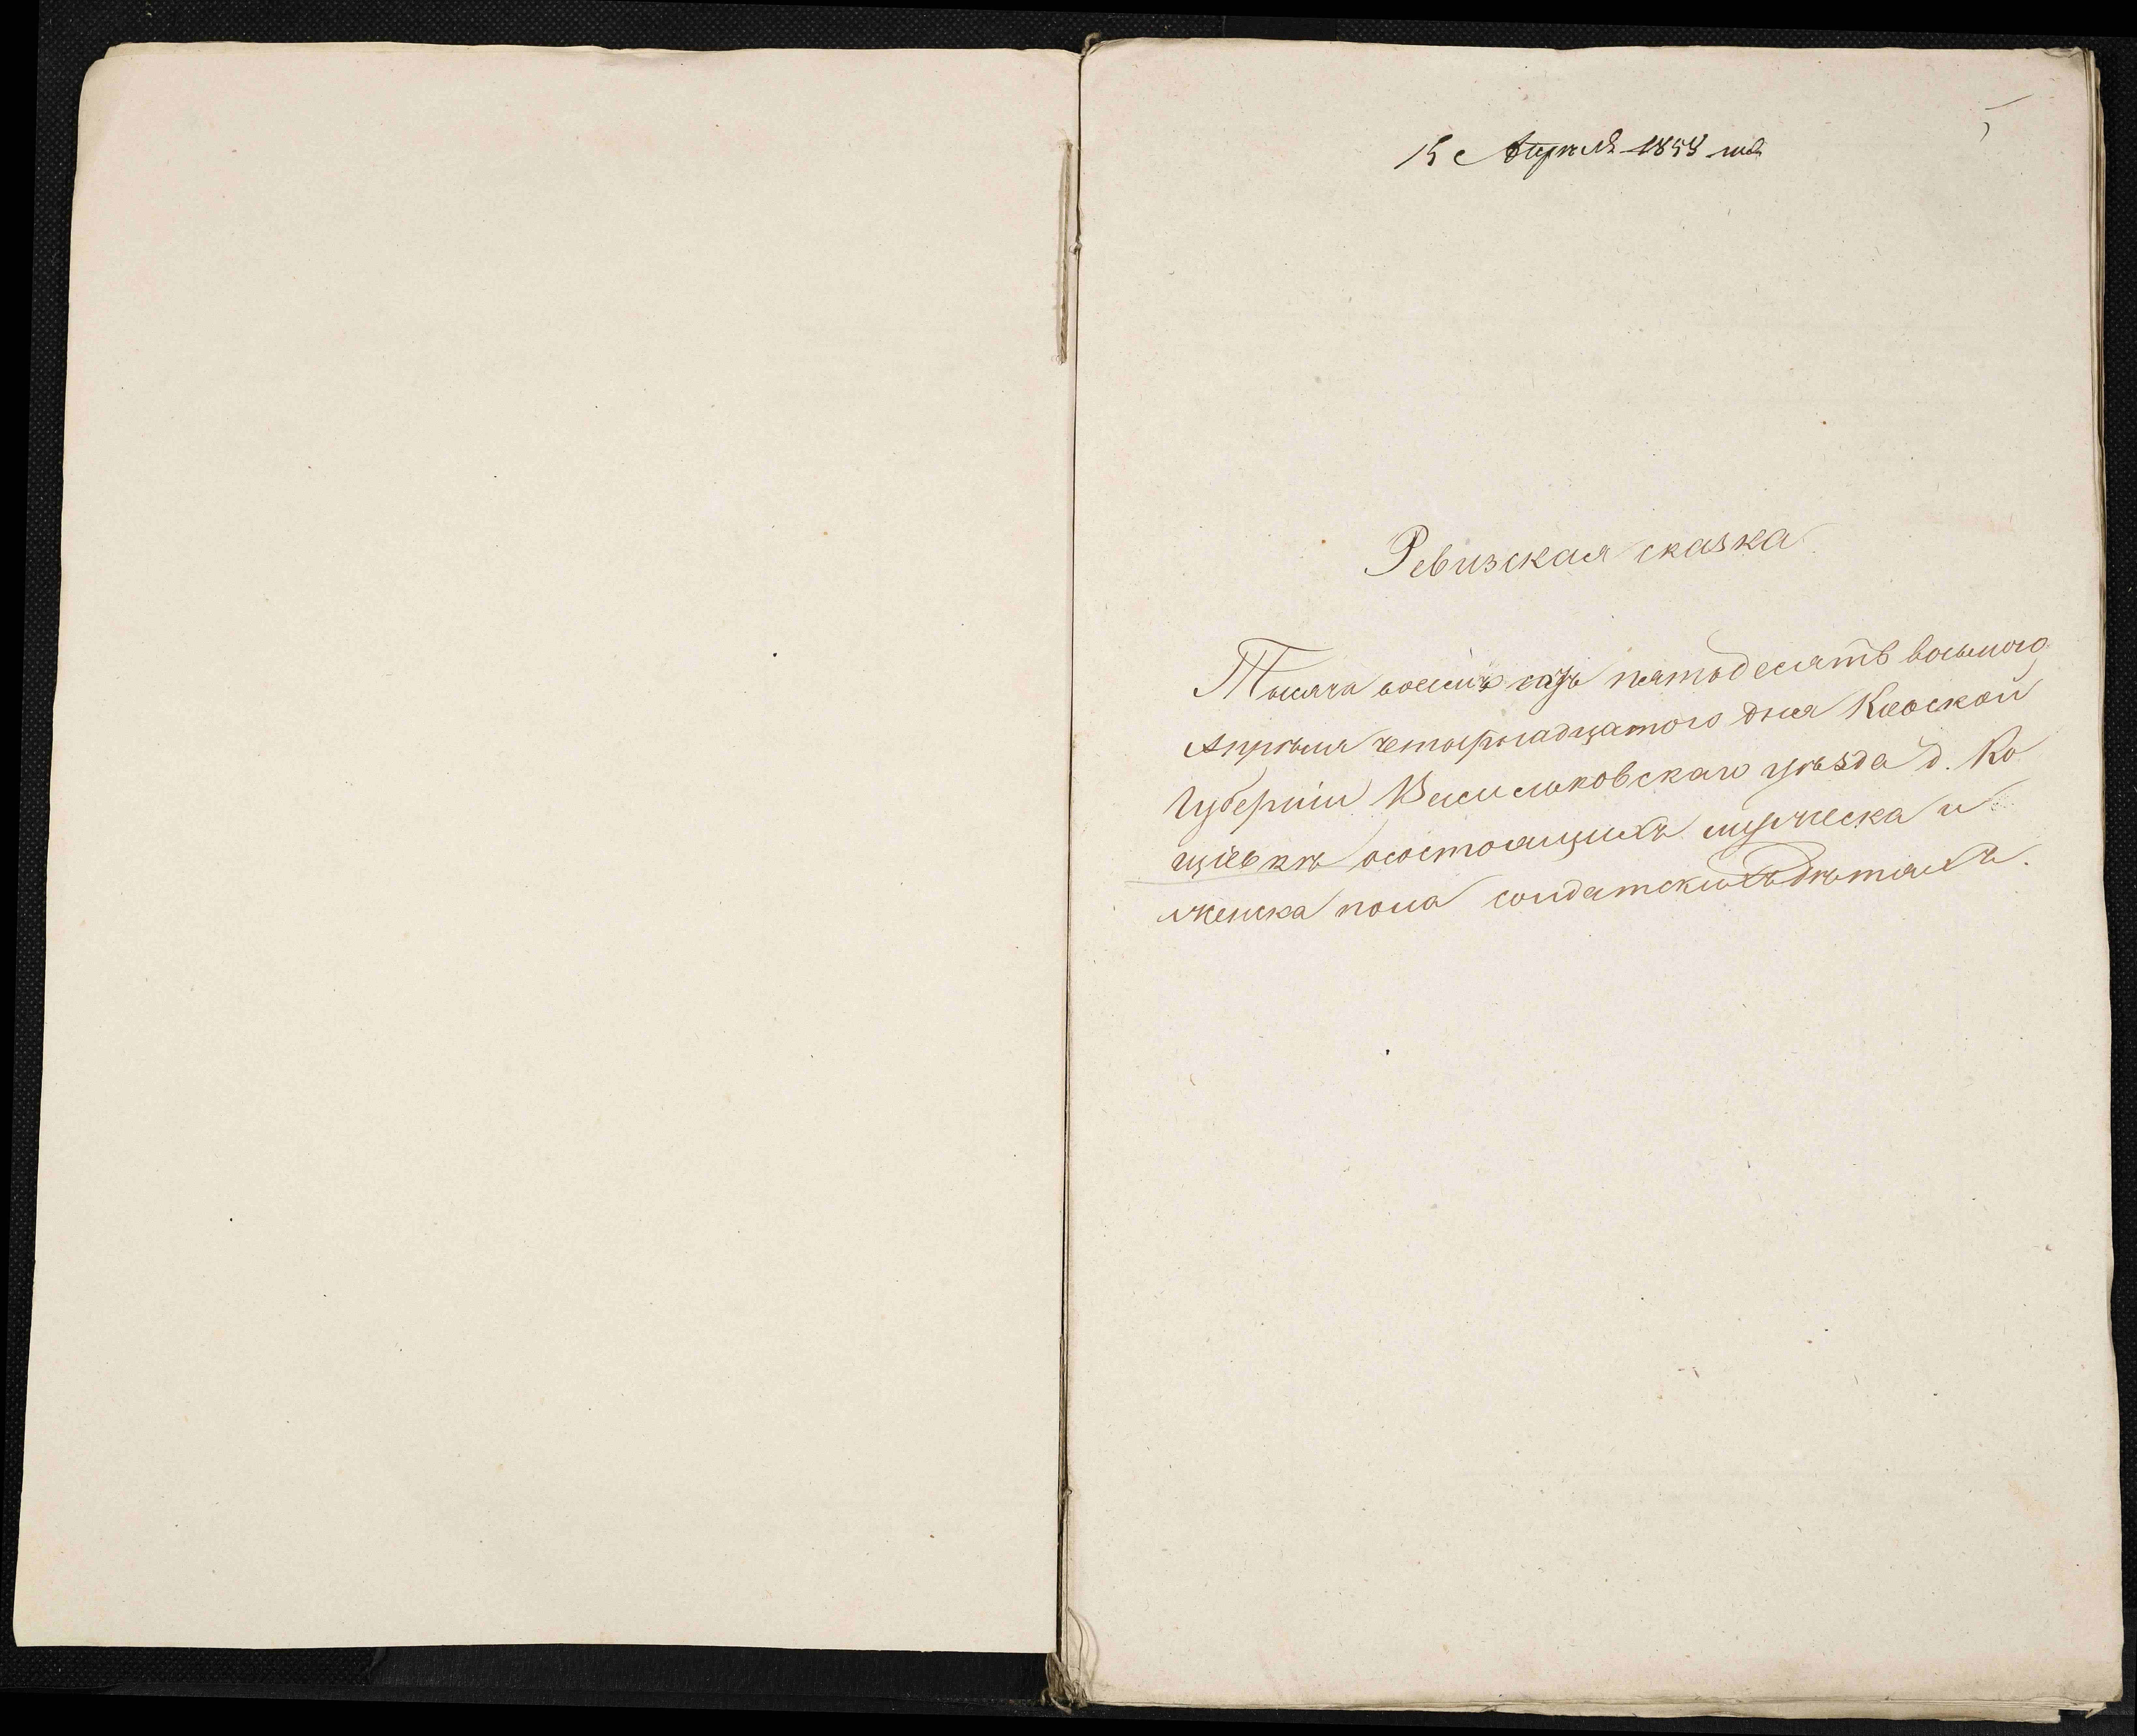 15 Апрѣля 1858 года
Ревизская сказка
Тысяча восемь сотъ пятьдесятъ восьмого
Апрѣля четырнадцатого дня Кіевской
Губерніи Васильковскаго уѣзда д. Ко
щіевкѣ о состоящихъ мужческа и
женска пола солдатскихъ дѣтяхъ.